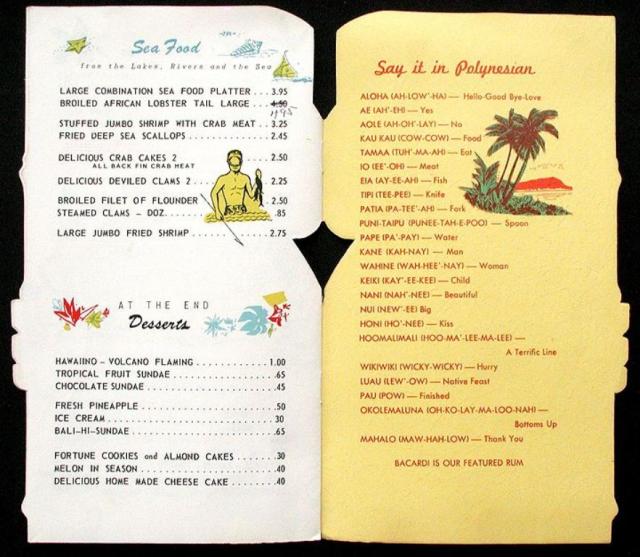 Sea Food
from the Lakes, Rivers and the Sea
LARGE COMBINATION SEA FOOD PLATTER . . . 3.95
BROILED AFRICAN LOBSTER TAIL LARGE . . . 4.50
4.95
STUFFED JUMBO SHRIMP WITH CRAB MEAT . . 3.25
FRIED DEEP SEA SCALLOPS . . . . . . . . . . . . . 2.45
DELICIOUS CRAB CAKES 2 . . . . 2.50
ALL BACK FIN CRAB MEAT
DELICIOUS DEVILED CLAMS 2 . . . . 2.25
BROILED FILET OF FLOUNDER . . 2.50
STEAMED CLAMS – DOZ. . . . . .85
LARGE JUMBO FRIED SHRIMP . . . . . . . . . . . 2.75
AT THE END
Desserts
HAWAIINO – VOLCANO FLAMING . . . . . . . . . 1.00
TROPICAL FRUIT SUNDAE . . . . . . . . . . . . . . .65
CHOCOLATE SUNDAE . . . . . . . . . . . . . . . . . .45
FRESH PINEAPPLE . . . . . . . . . . . . . . . . . . . .50
ICE CREAM . . . . . . . . . . . . . . . . . . . . . . . . 30
BALI-HI-SUNDAE . . . . . . . . . . . . . . . . . . . . .65
FORTUNE COOKIES and ALMOND CAKES . . . . .30
MELON IN SEASON . . . . . . . . . . . . . . . . . . .40
DELICIOUS HOME MADE CHEESE CAKE . . . . . .40
Say it in Polynesian
ALOHA (AH-LOW'-HA) — Hello-Good Bye-Love
AE (AH'-EH) — Yes
AOLE (AH-OH'-LAY) — No
KAU KAU (COW-COW) — Food
TAMAA (TUH'-MA-AH) — Eat
IO (EE'-OH) — Meat
EIA (AY-EE-AH) — Fish
TIPI (TEE-PEE) — Knife
PATIA (PA-TEE'-AH) — Fork
PUNI-TAIPU (PUNEE-TAH-E-POO) — Spoon
PAPE (PA'-PAY) — Water
KANE (KAH-NAY) — Man
WAHINE (WAH-HEE'-NAY) — Woman
KEIKI (KAY'-EE-KEE) — Child
NANI (NAH'-NEE) — Beautiful
NUI (NEW'-EE) Big
HONI (HO'-NEE) — Kiss
HOOMALIMALI (HOO-MA'-LEE-MA-LEE) —
A Terrific Line
WIKIWIKI (WICKY-WICKY) — Hurry
LUAU (LEW'-OW) — Native Feast
PAU (POW) — Finished
OKOLEMALUNA (OH-KO-LAY-MA-LOO-NAH) —
Bottoms Up
MAHALO (MAW-HAH-LOW) — Thank You
BACARDI IS OUR FEATURED RUM